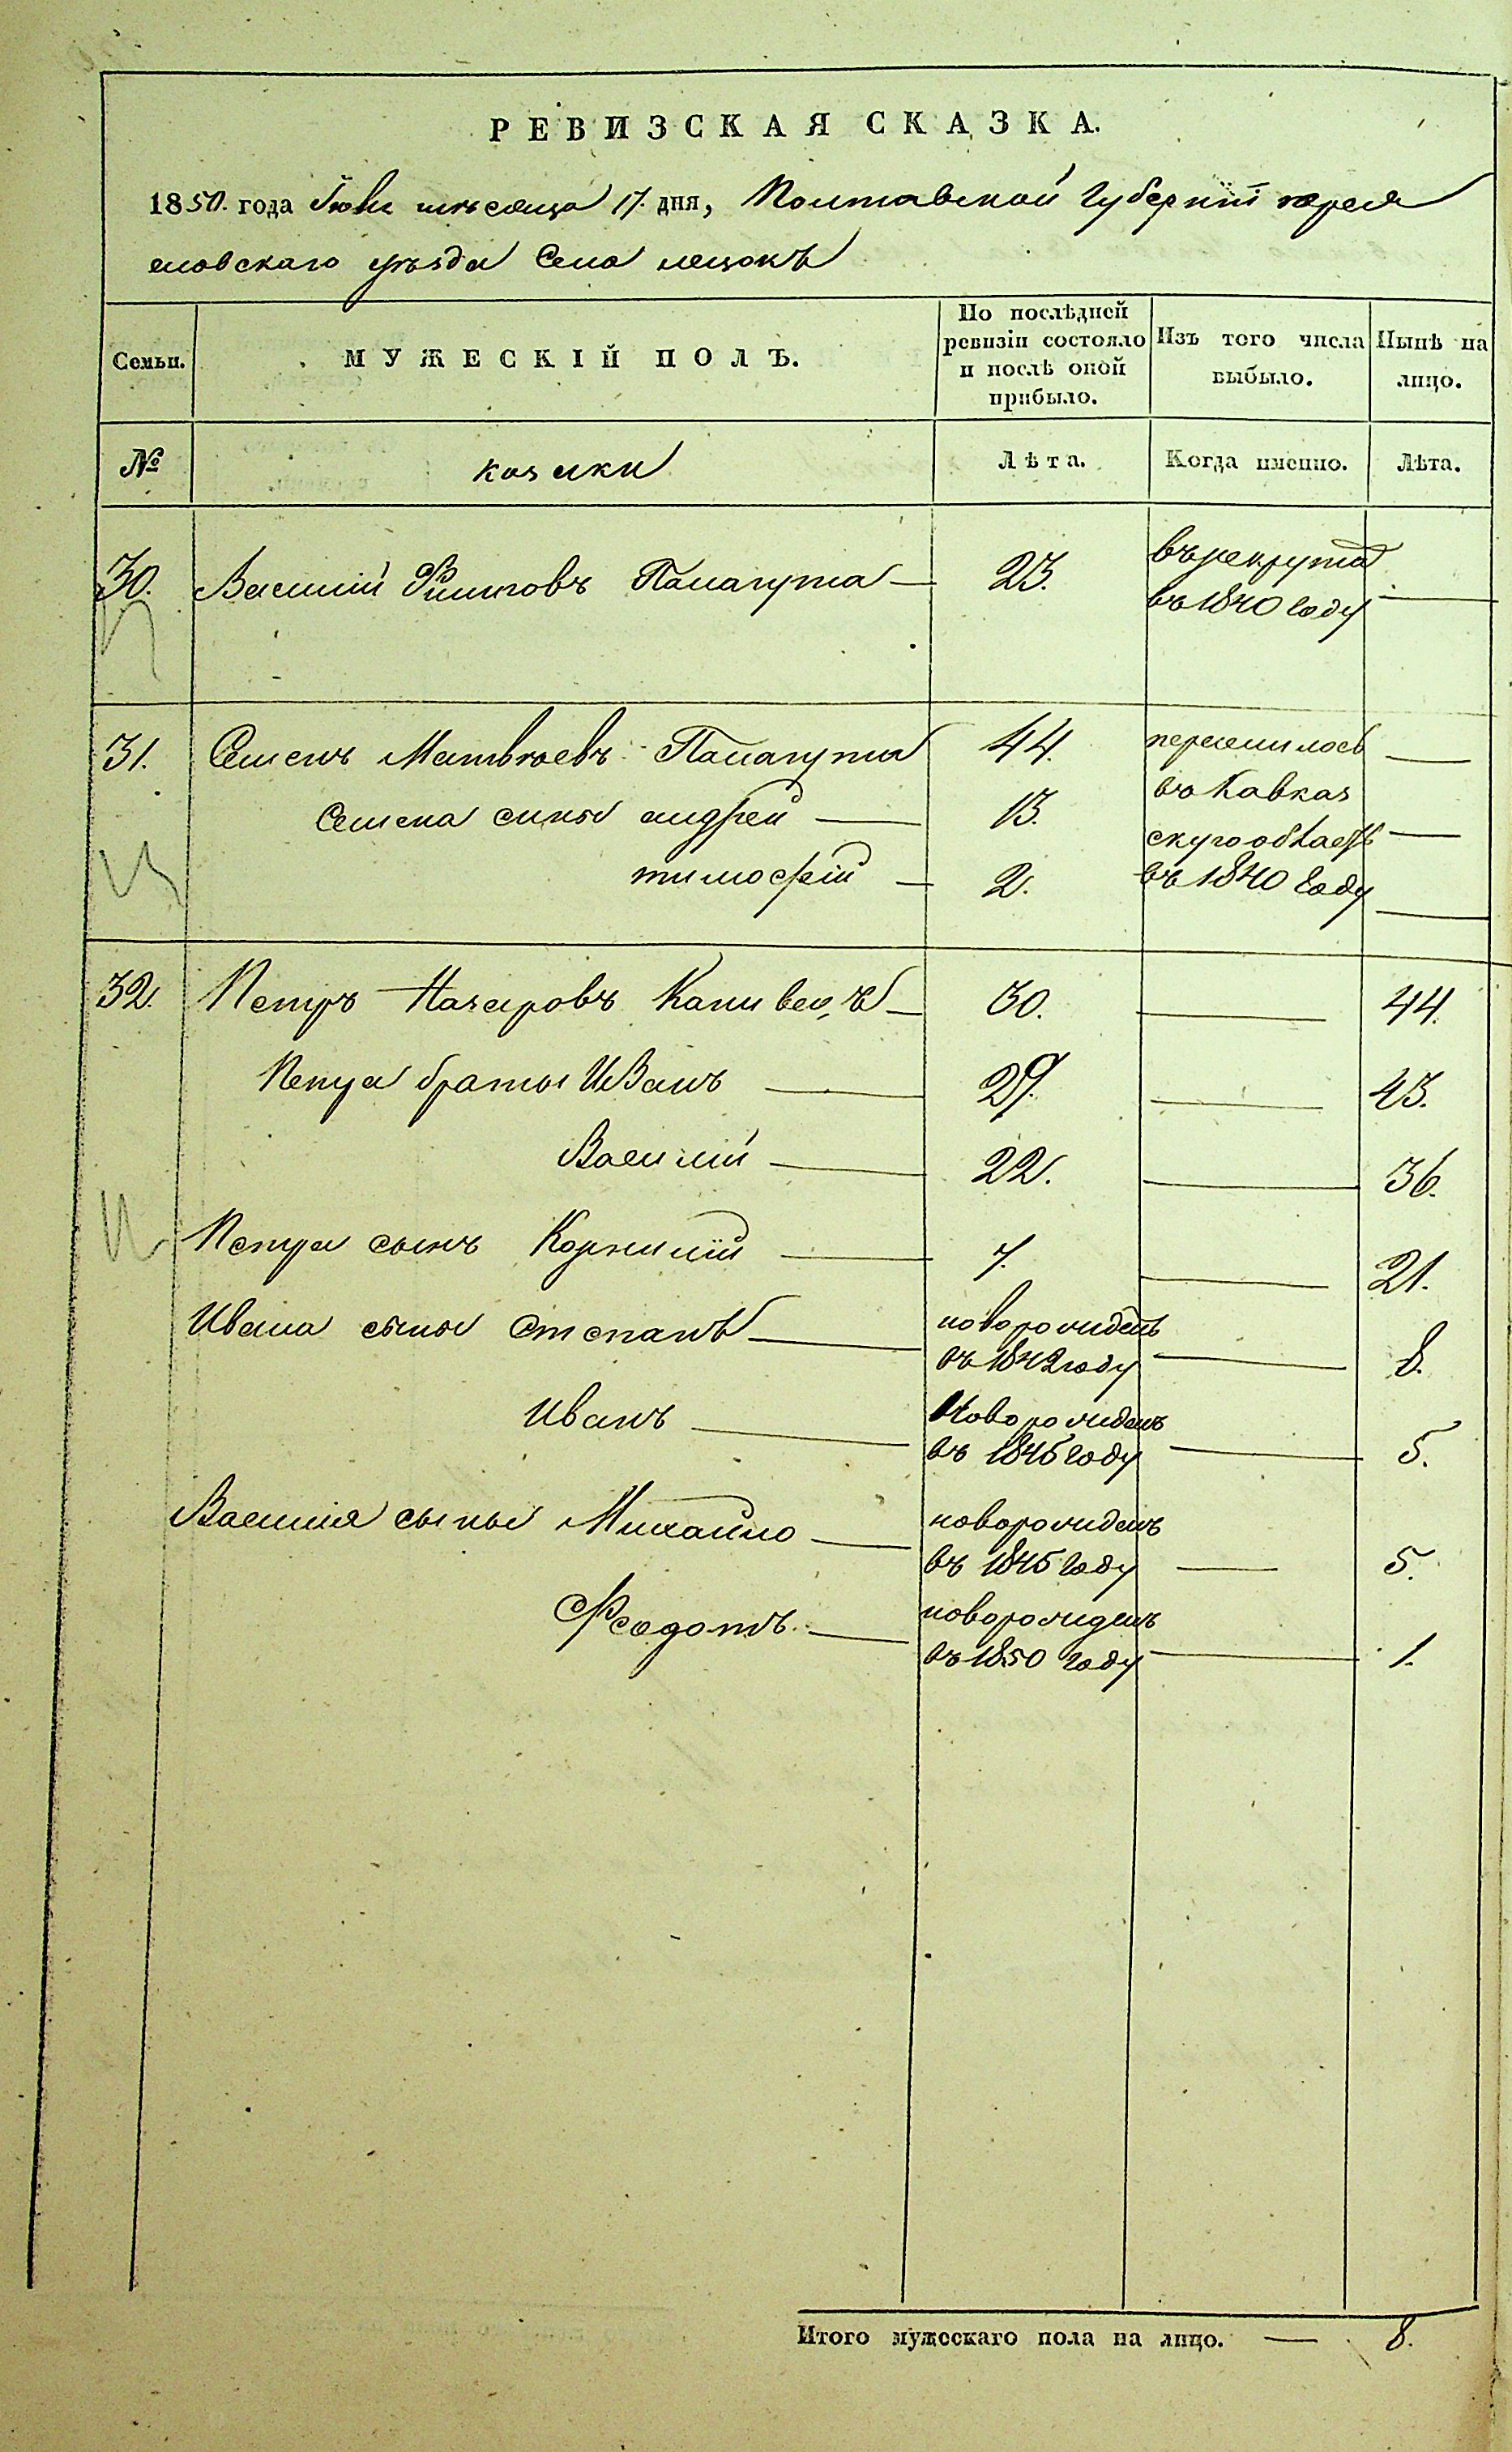 РЕВИЗСКАЯ СКАЗКА.
1850. года Іюня мѣсяца 17. дня, Полтавской Губерніи переяс
лавскаго уѣзда Села
Семьи.
МУЖЕСКІЙ ПОЛЪ.
По послѣдней ревизіи состояло и послѣ оной прибыло.
Изъ того числа выбыло.
Нынѣ на лицо.
№
козаки
Лѣта.
Когда именно.
Лѣта.
30. Василій Филиповъ Палагута — 23. въ рекрута
въ 1840 году —
31. Семенъ Матвѣевъ Палагута 44. переселилось —
въ Кавказ
Семена сины андрей — 13. скую область —
тимофей — 2. въ 1840 году —
32. Петръ Назаровъ Каневецъ — 30. — 44.
Петра браты Иванъ — 29. — 43.
Василій — 22. — 36.
Петра сынъ Корнилій — 7. — 21.
Ивана сыны Степанъ — новорожденъ
въ 1842 году — 8.
Иванъ — Новорожденъ
въ 1845 году — 5.
Василія сыны Михайло — новорожденъ
въ 1845 году — 5.
Феодотъ — новорожденъ
въ 1850 году — 1.
Итого мужескаго пола на лицо. — 8.